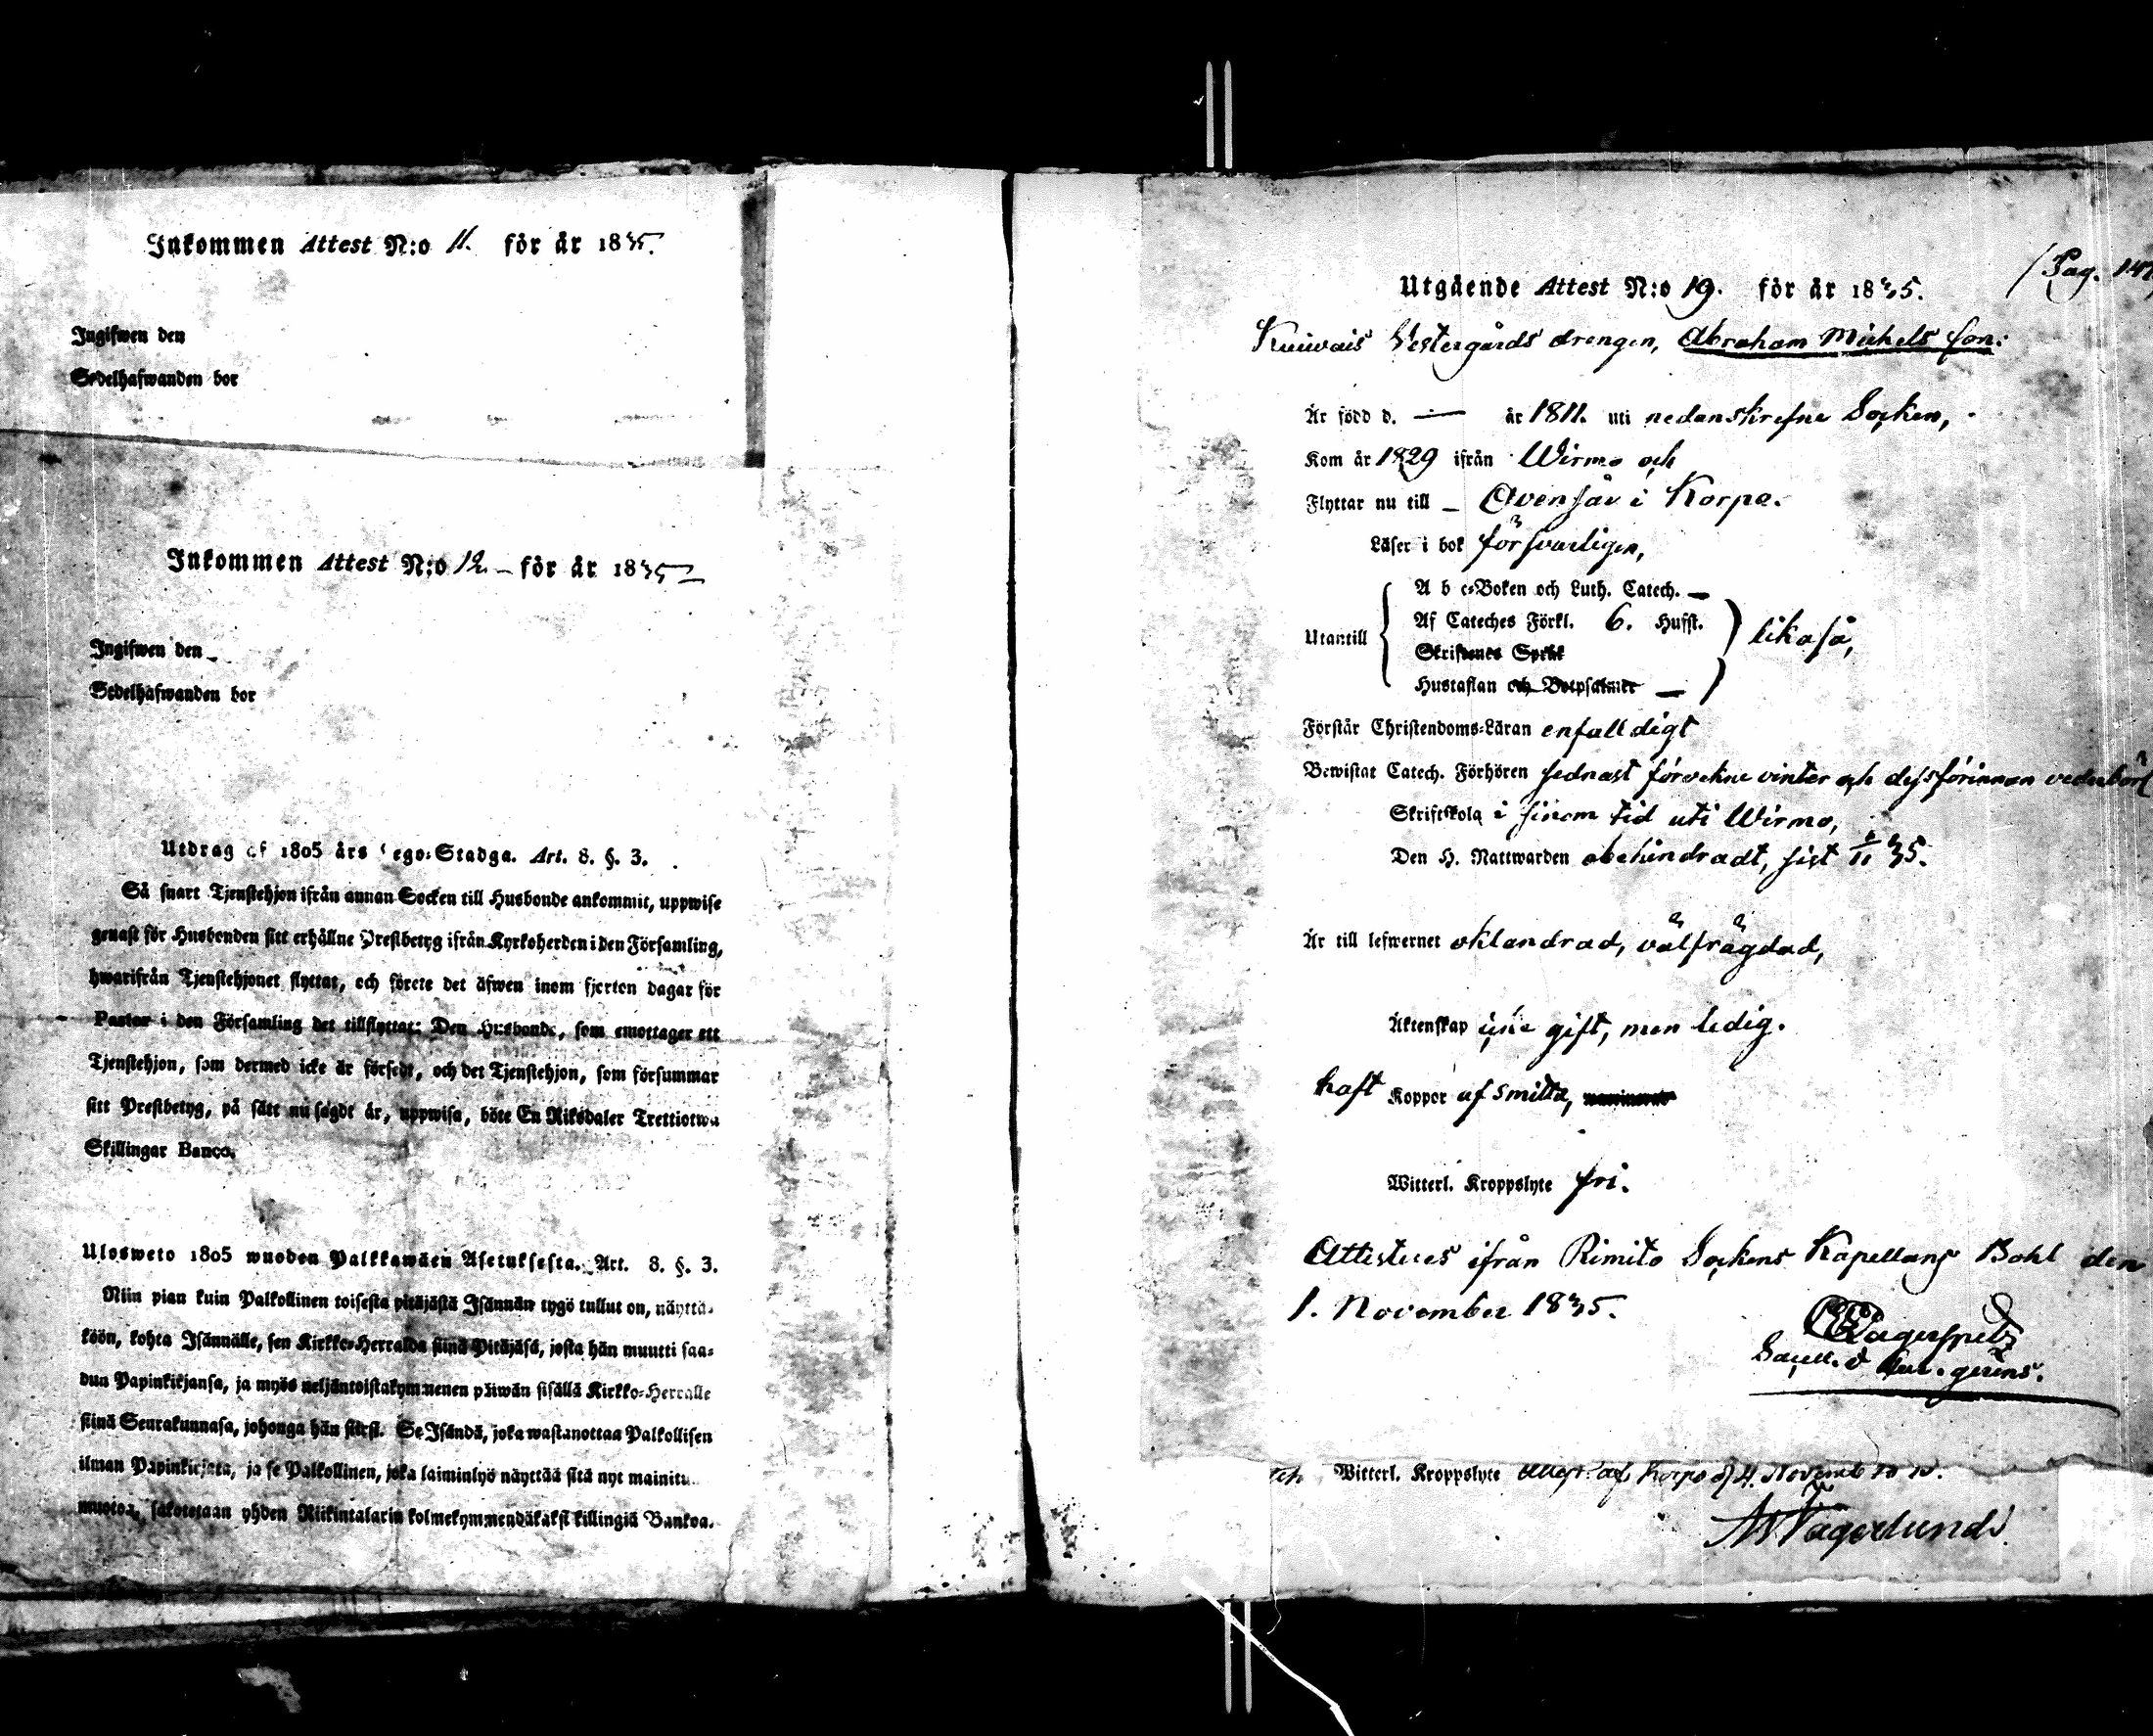 Inkommen Attest N:o 11. för år 1835.
Ingifwen den
Sedelhafwanden bor
Inkommen Attest N:o 12. – för år 1835
Ingifwen den
Sedelhafwanden bor
Utdrag af 1805 års Lego-Stadga. Art. 8. §. 3.
Så snart Tjenstehjon ifrån annan Socken till Husbonde ankommit, uppwise
genast för Husbonden sitt erhållne Prestbetyg ifrån Kyrkoherden i den Församling,
hwarifrån Tjenstehjonet flyttat, och förete det äfwen inom fjorton dagar för
Pastor i den Församling det tillflyttat: Den Husbonde, som emottager ett
Tjenstehjon, som dermed icke är försedt, och det Tjenstehjon, som försummar
sitt Prestbetyg, på sätt nu sagdt är, uppwisa, böte En Riksdaler Trettiotwå
Skillingar Banco.
Ulosweto 1805 wuoden Palkkawäen Asetuksesta. Art. 8. §. 3.
Niin pian kuin Palkollinen toisesta pitäjästä Isännän tygö tullut on, näyttä-
köön, kohta Isännälle, sen Kirkko-Herralda siinä Pitäjäsä, josta hän muutti saa-
dun Papinkirjansa, ja myös neljäntoistakymmenen päiwän sisällä Kirkko-Herralle
siinä Seurakunnasa, johonga hän siirsi. Se Isändä, joka wastanottaa Palkollisen
ilman Papinkirjata, ja se Palkollinen, joka laiminlyö näyttää sitä nyt mainitu
muotoa, sakotetaan yhden Riikintalarin kolmekymmendäkaksi killingiä Bankoa.
(Pag. 147
Utgående Attest N:o 19. för år 1835.
Kuivais Vestergårds drengen, Abraham Michels son:
Är född d. — år 1811. uti nedanskrefne Socken,
Kom år 1829 ifrån Wirmo och
Flyttar nu till – Avensår i Korpo.
Läser i bok försvarligen,
Utantill
A b c-Boken och Luth. Catech. —
Af Cateches Förkl. 6. Hufst.
Skriftenes Språk
Hustaflan och Botpsalmer —
likaså,
Förstår Christendoms-Läran enfalldigt
Bewistat Catech. Förhören sednast förvekne vinter och dessförinnan vederbörl
Skriftskola i sinom tid uti Wirmo,
Den H. Nattwarden obehindradt, sist 1/11 35.
Är till lefwernet oklandrad, välfrägdad,
Äktenskap icke gift, men ledig.
haft Koppor af smitta,
Witterl. Kroppslyte fri.
Attesteres ifrån Rimito Sockens Kapellans Bohl den
1. November 1835.
Lagerspetz
Sacell. & Cur. gerens.
Witterl. Kroppslyte Korpo d 4. Novemb
Fagerlund